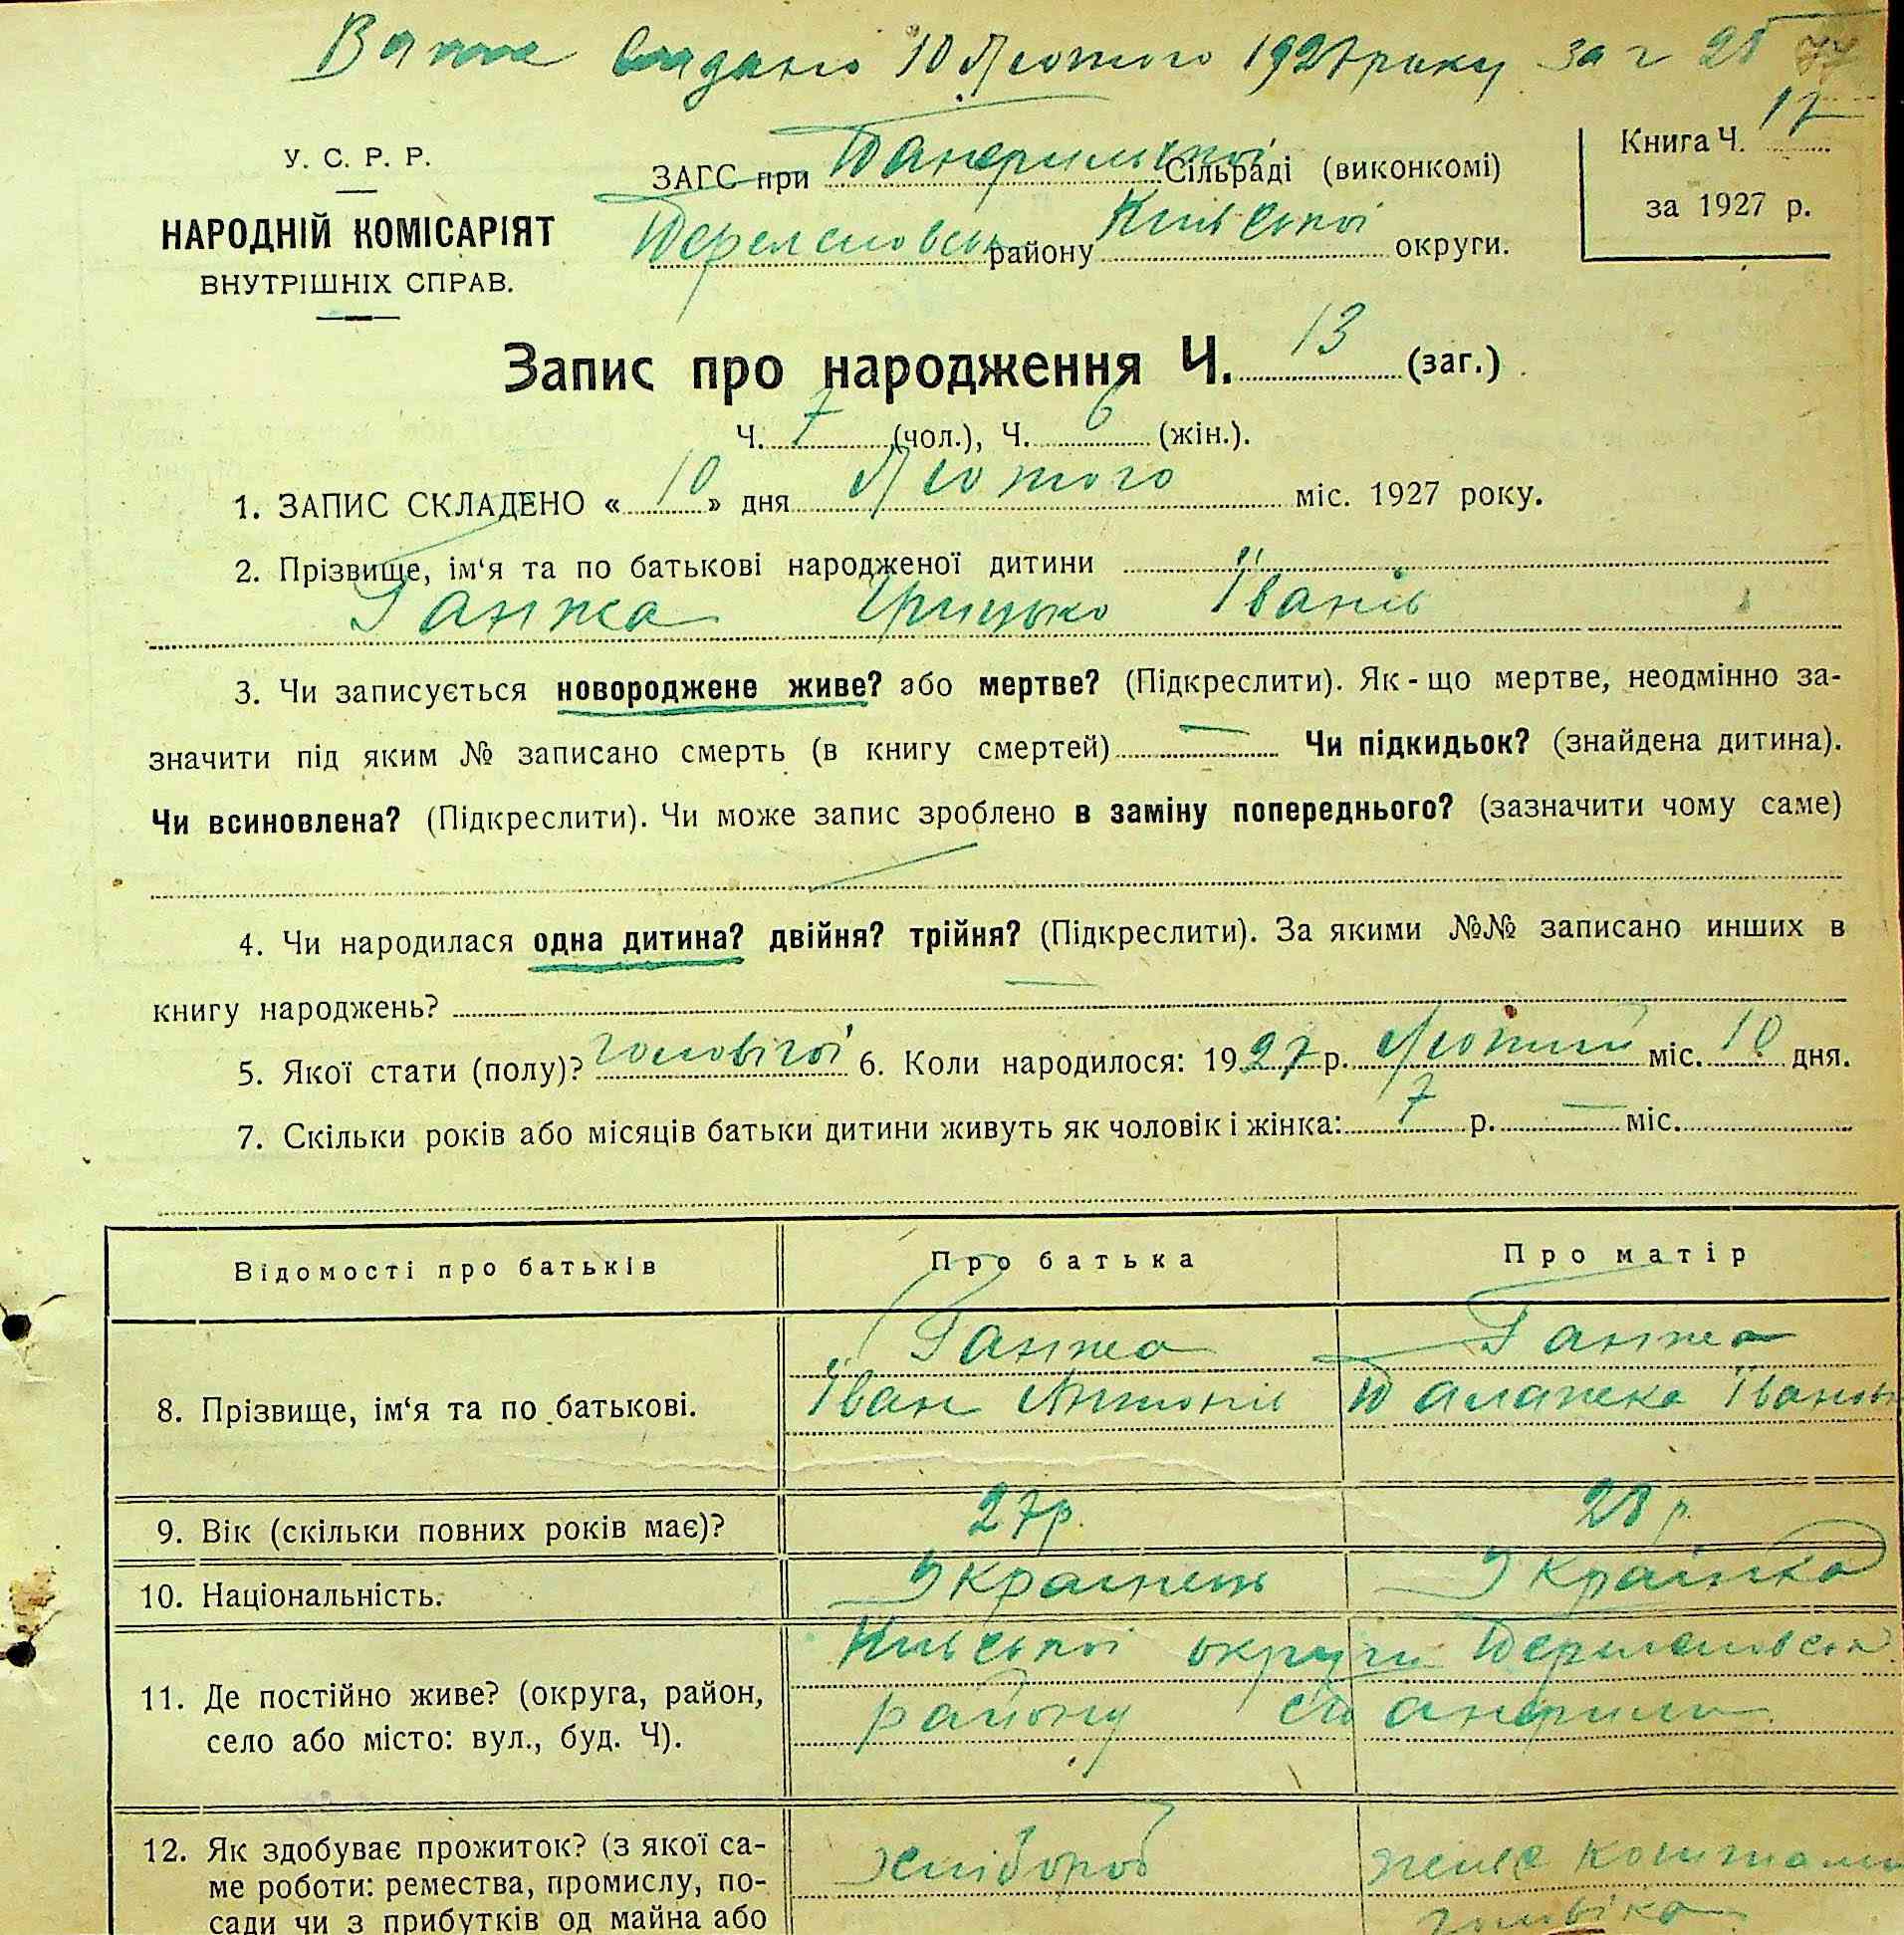 видано 10 Лютого 1927 року за ч 25
У. С. Р. Р.
НАРОДНІЙ КОМІСАРІЯТ
ВНУТРІШНІХ СПРАВ.
ЗАГС при Сільраді (виконкомі)
району Київської округи.
Книга Ч. 17
за 1927 р.
Запис про народження Ч. 13 (заг.)
Ч. 7 (чол.), Ч. 6 (жін.).
1. ЗАПИС СКЛАДЕНО « 10 » дня Лютого міс. 1927 року.
2. Прізвище, ім'я та по батькові народженої дитини
Ганжа Грицько Іванів
3. Чи записується новороджене живе? або мертве? (Підкреслити). Як-що мертве, неодмінно за-
значити під яким № записано смерть (в книгу смертей) — Чи підкидьок? (знайдена дитина).
Чи всиновлена? (Підкреслити). Чи може запис зроблено в заміну попереднього? (зазначити чому саме)
4. Чи народилася одна дитина? двійня? трійня? (Підкреслити). За якими №№ записано инших в
книгу народжень? —
5. Якої стати (полу)? чоловічої 6. Коли народилося: 1927 р. Лютий міс. 10 дня.
7. Скільки років або місяців батьки дитини живуть як чоловік і жінка: 7 р. — міс.
Відомості про батьків Про батька Про матір
8. Прізвище, ім'я та по батькові.
Ганжа Ганжа
Іван Антонів Палажка Іванів
9. Вік (скільки повних років має)? 27 р. 28 р.
10. Національність. Українець Українка
11. Де постійно живе? (округа, район,
село або місто: вул., буд. Ч).
Київської округи
району
12. Як здобуває прожиток? (з якої са-
ме роботи: ремества, промислу, по-
сади чи з прибутків од майна або
хлібороб живе коштами
чоловіка